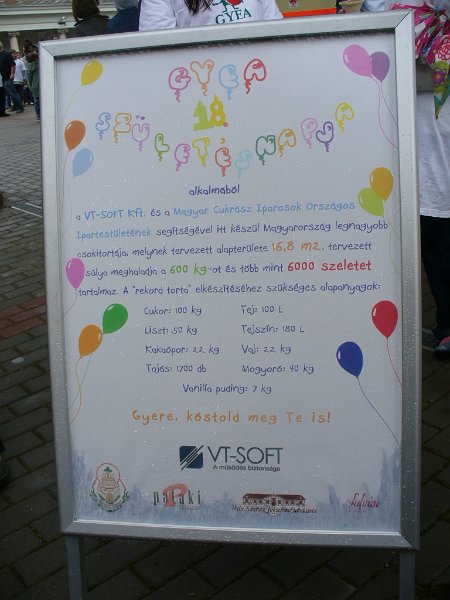 GYFA
GYEA
18.
SZÜLETÉSNAPJA
alkalmából
a VT-SOFT Kft. és a Magyar Cukrász Iparosok Országos
Ipartestületének segítségével itt készül Magyarország legnagyobb
csokitortája, melynek tervezett alapterülete 16,8 m2, tervezett
súlya meghaladja a 600 kg-ot és több mint 6000 szeletet
tartalmaz. A "rekord torta" elkészítéséhez szükséges alapanyagok:
Cukor: 100 kg Tej: 100 L
Liszt: 50 kg Tejszín: 180 L
Kakaópor: 22 kg Vaj: 22 kg
Tojás: 1700 db Mogyoró: 40 kg
Vanília puding: 7 kg
Gyere, kóstold meg Te is!
VT-SOFT
A működés biztonsága
pataki